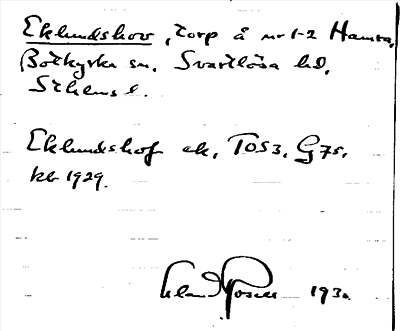 Eklundshov, torp å nr 1-2 Hamra,
Botkyrka sn. Svartlösa hd,
Sthlms l.
Eklundshof ek, TOS3, G75,
kb 1929.
1930